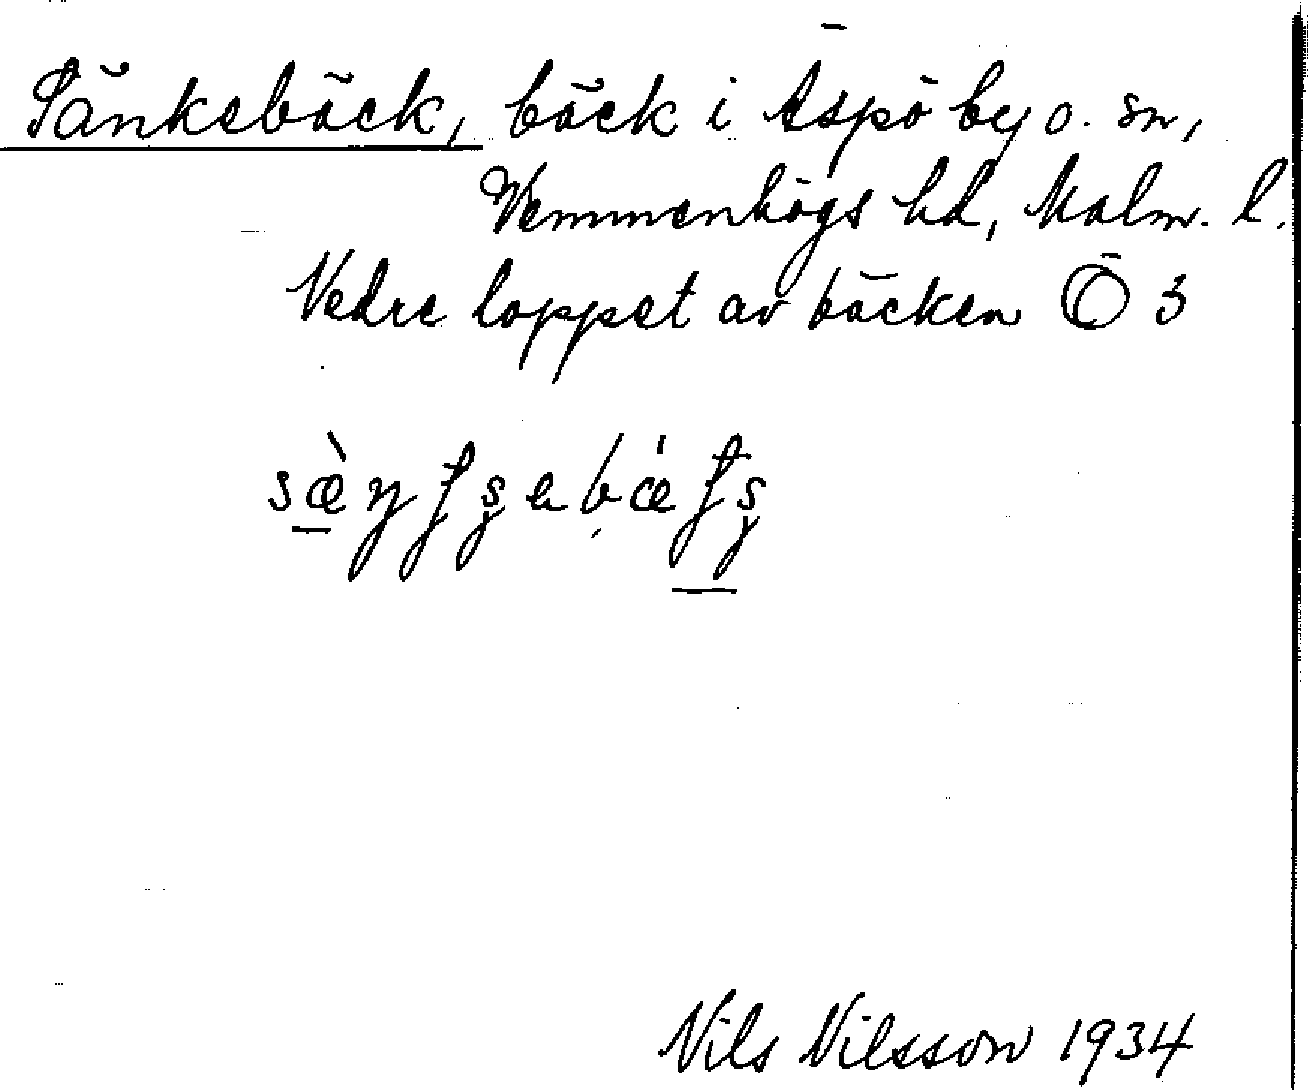 Sänkebäck, bäck i Äspö by o. sn,
Vemmenhögs hd, Malm. l.
Nedre loppet av bäcken Ö 3
Nils Nilsson 1934